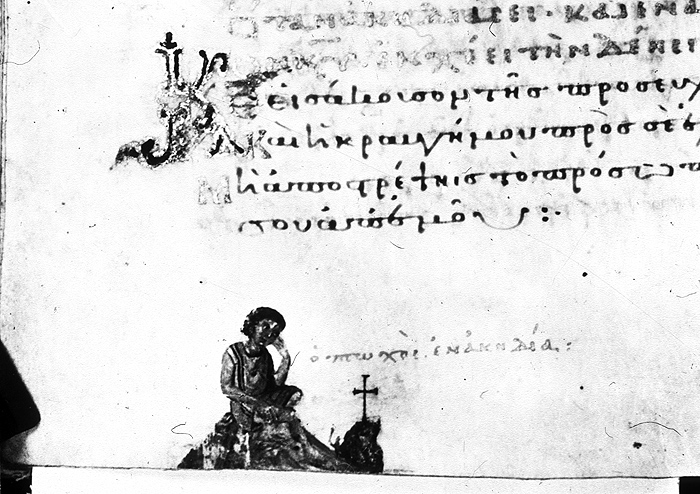 ΚΑΙ ΕΝΑ
ΕΚΧΕΕΙ ΤΗΝ ΔΕΗΣΙ
Κε εἰσάκουσον τῆς προσευχ
καὶ ἡ κραυγή μου πρὸς σὲ ἐ
Μὴ ἀποστρέψηις τὸ πρόσωπ
σου ἀπ' ἐμοῦ :·
ὁ πτωχὸς ἐν ἀκηδία :